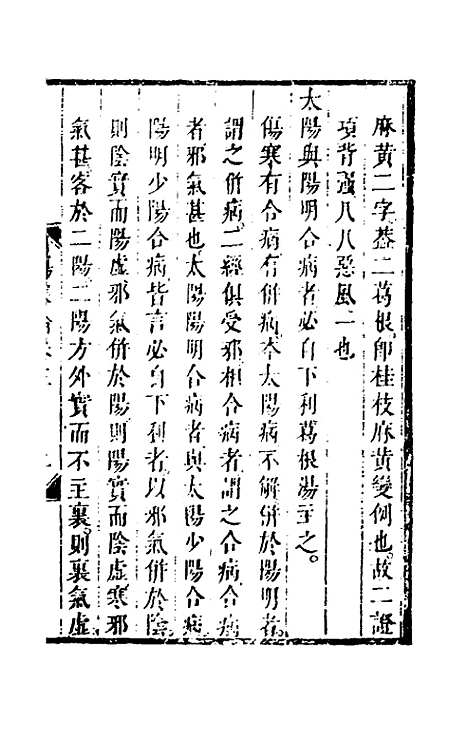 麻黃二字蓋二葛根卽桂枝麻黃變例也故二證
項背強八八惡風一也
太陽與陽明合病者必自下利葛根湯主之。
傷寒有合病有併病本太陽病不解併於陽明者
謂之併病二經俱受邪相合病者謂之合病合病
者邪氣甚也太陽陽明合病者與太陽少陽合病
陽明少陽合病皆言必自下利者以邪氣併於陰
則陰實而陽虛邪氣併於陽則陽實而陰虛寒邪
氣甚客於二陽二陽方外實而不主裏則裏氣虛